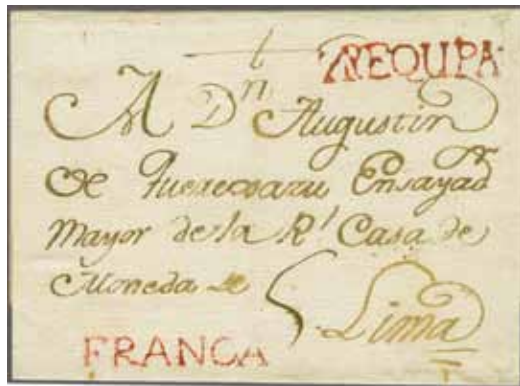 AREQUIPA
A Dⁿ Augustin
de Ensayadʳ
Mayor de la Rˡ Casa de
Moneda de 5 Lima
FRANCA